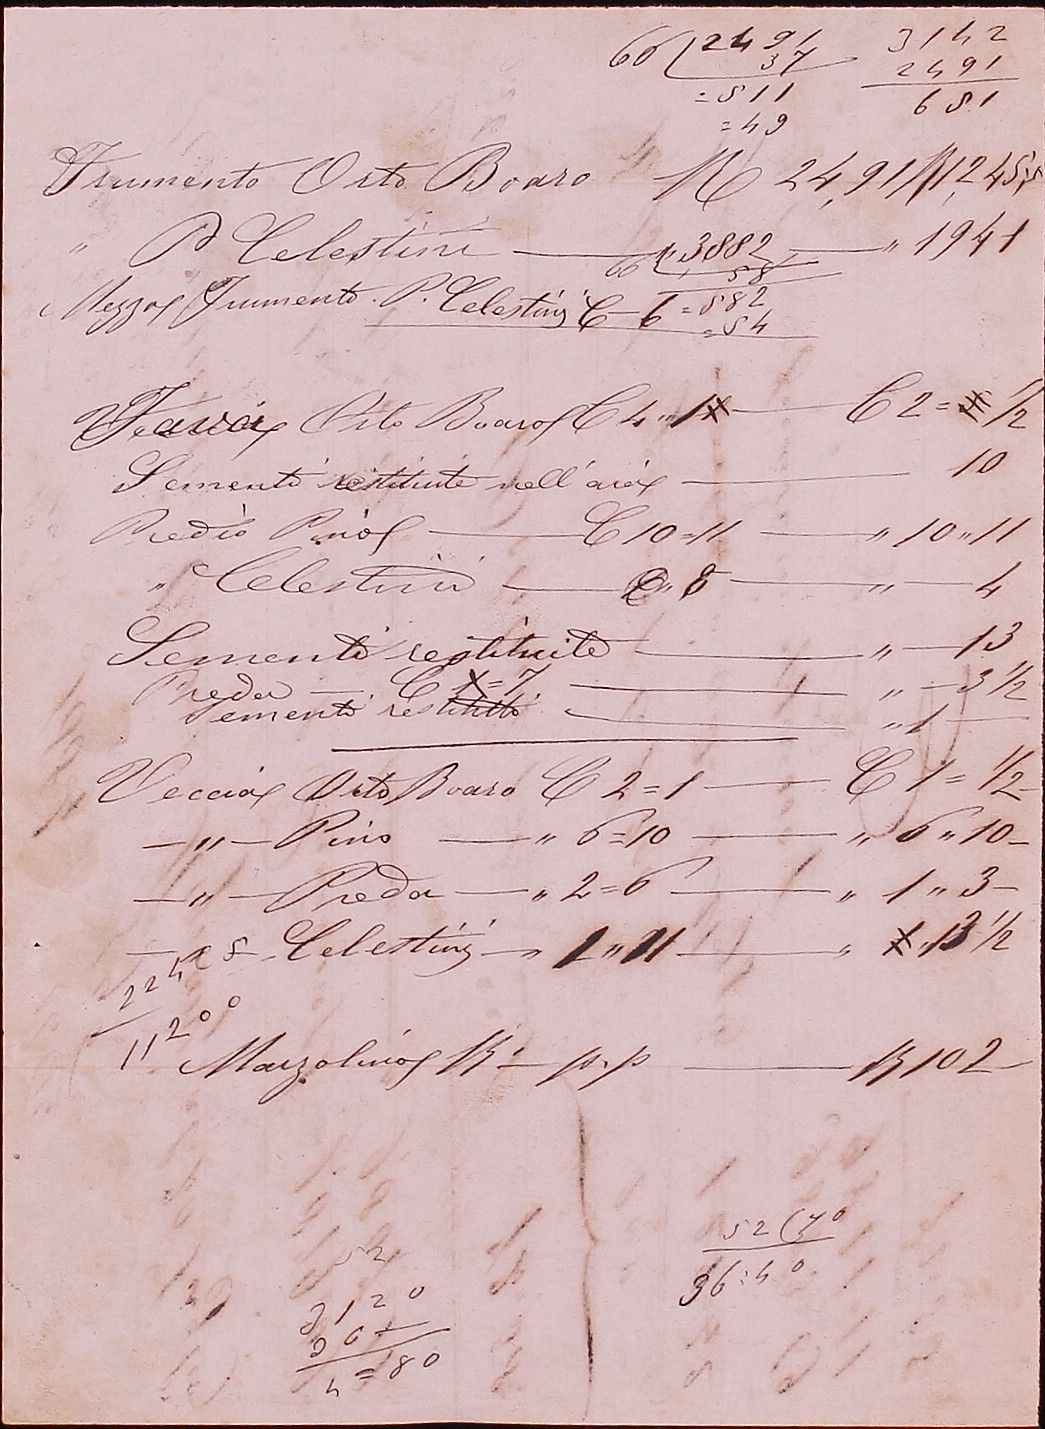 66 ( 2491 3142
37 2491
= 511 651
= 49
Frumento Orto Boaro 24,91 12455
" P Celestini " 3882 " 1941
66 ( 58
Mezzo Frumento P. Celestini C 6 = 582
= 54
Fava Orto Boaro C 4 " 1 C 2 = 1/2
Sementi restituite nell'aia 10
Predio Pino C 10 = 11 " 10 " 11
" Celestini " 8 " 4
Sementi restituite " 13
Preda C = 7 " 3 1/2
Sementi restitute " 1
Veccia Orto Boaro C 2 = 1 C 1 = 1/2
" Pino " 6 = 10 " 6 " 10
" Preda " 2 = 6 " 1 " 3
Celestini " 1 " 11 " 13 1/2
224
11200
Marzolino p.p 102
52 (70
36:40
52
3120
4 = 80